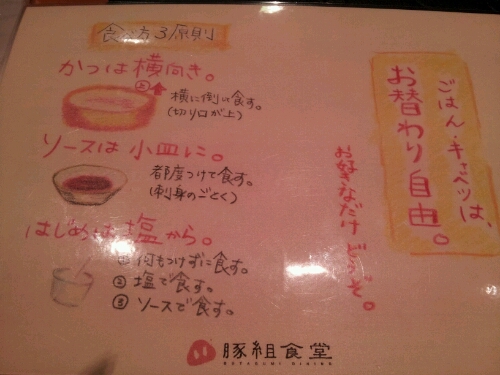 食べ方3原則
かつは横向き。
横に倒し食す。
(切り口が上)
ソースは小皿に。
都度つけて食す。
(刺身のごとく)
はじめは塩から。
① 何もつけずに食す。
② 塩で食す。
③ ソースで食す。
ごはん・キャベツは、
お替わり自由。
お好きなだけどうぞ。
豚組食堂
BUTAGUMI DINING